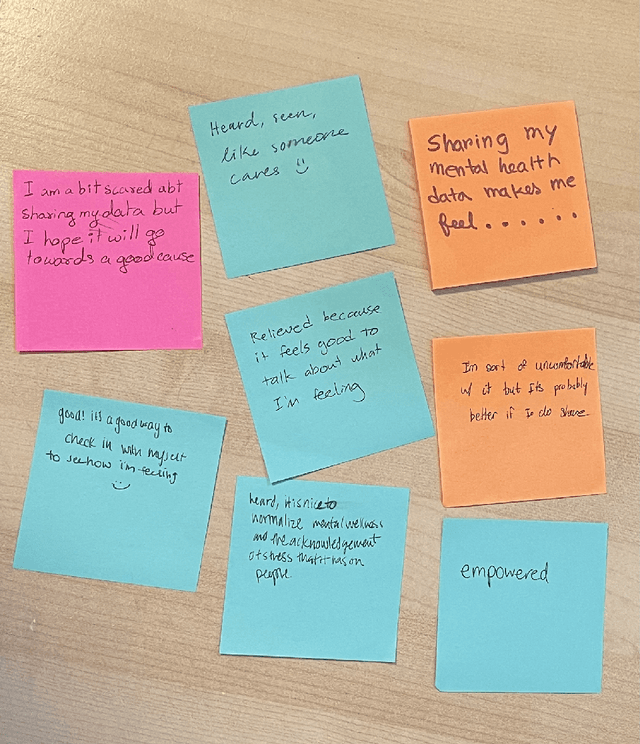 Sharing my
mental health
data makes me
feel......
Heard, seen,
like someone
cares :)
I am a bit scared abt
sharing my data but
I hope it will go
towards a good cause
Relieved because
it feels good to
talk about what
I'm feeling
Im sort of uncomfortable
w/ it but its probably
better if I do share
good! its a good way to
check in with myself
to see how i'm feeling
:)
heard, it is nice to
normalize mental wellness
and the acknowledgement
of stress that it has on
people
empowered